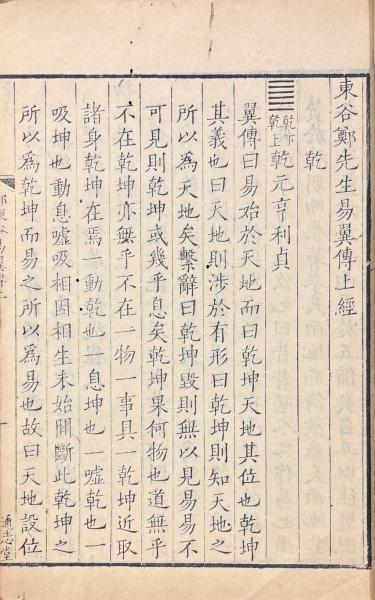 東谷鄭先生易翼傳上經
乾
乾下
乾上
乾元亨利貞
翼傳曰易始於天地而曰乾坤天地其位也乾坤
其義也曰天地則涉於有形曰乾坤則知天地之
所以為天地矣繫辭曰乾坤毀則無以見易易不
可見則乾坤或幾乎息矣乾坤果何物也道無乎
不在乾坤亦無乎不在一物一事具一乾坤近取
諸身乾坤在焉一動乾也一息坤也一噓乾也一
吸坤也動息噓吸相因相生未始閒斷此乾坤之
所以為乾坤而易之所以為易也故曰天地設位
通志堂